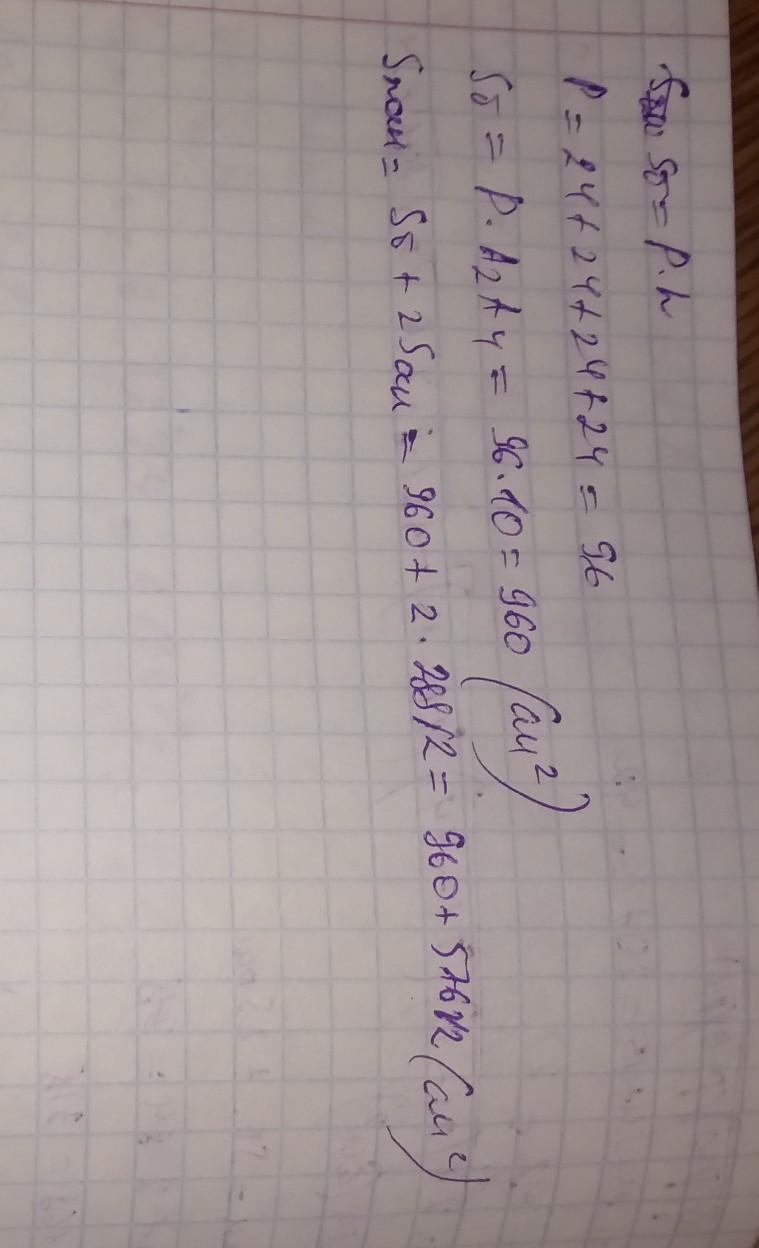 Sб = P · h
P = 24 + 24 + 24 + 24 = 96
Sб = P · A2A4 = 96 · 10 = 960 (см²)
Sпол = Sб + 2Sосн = 960 + 2 · 288√2 = 960 + 576√2 (см²)